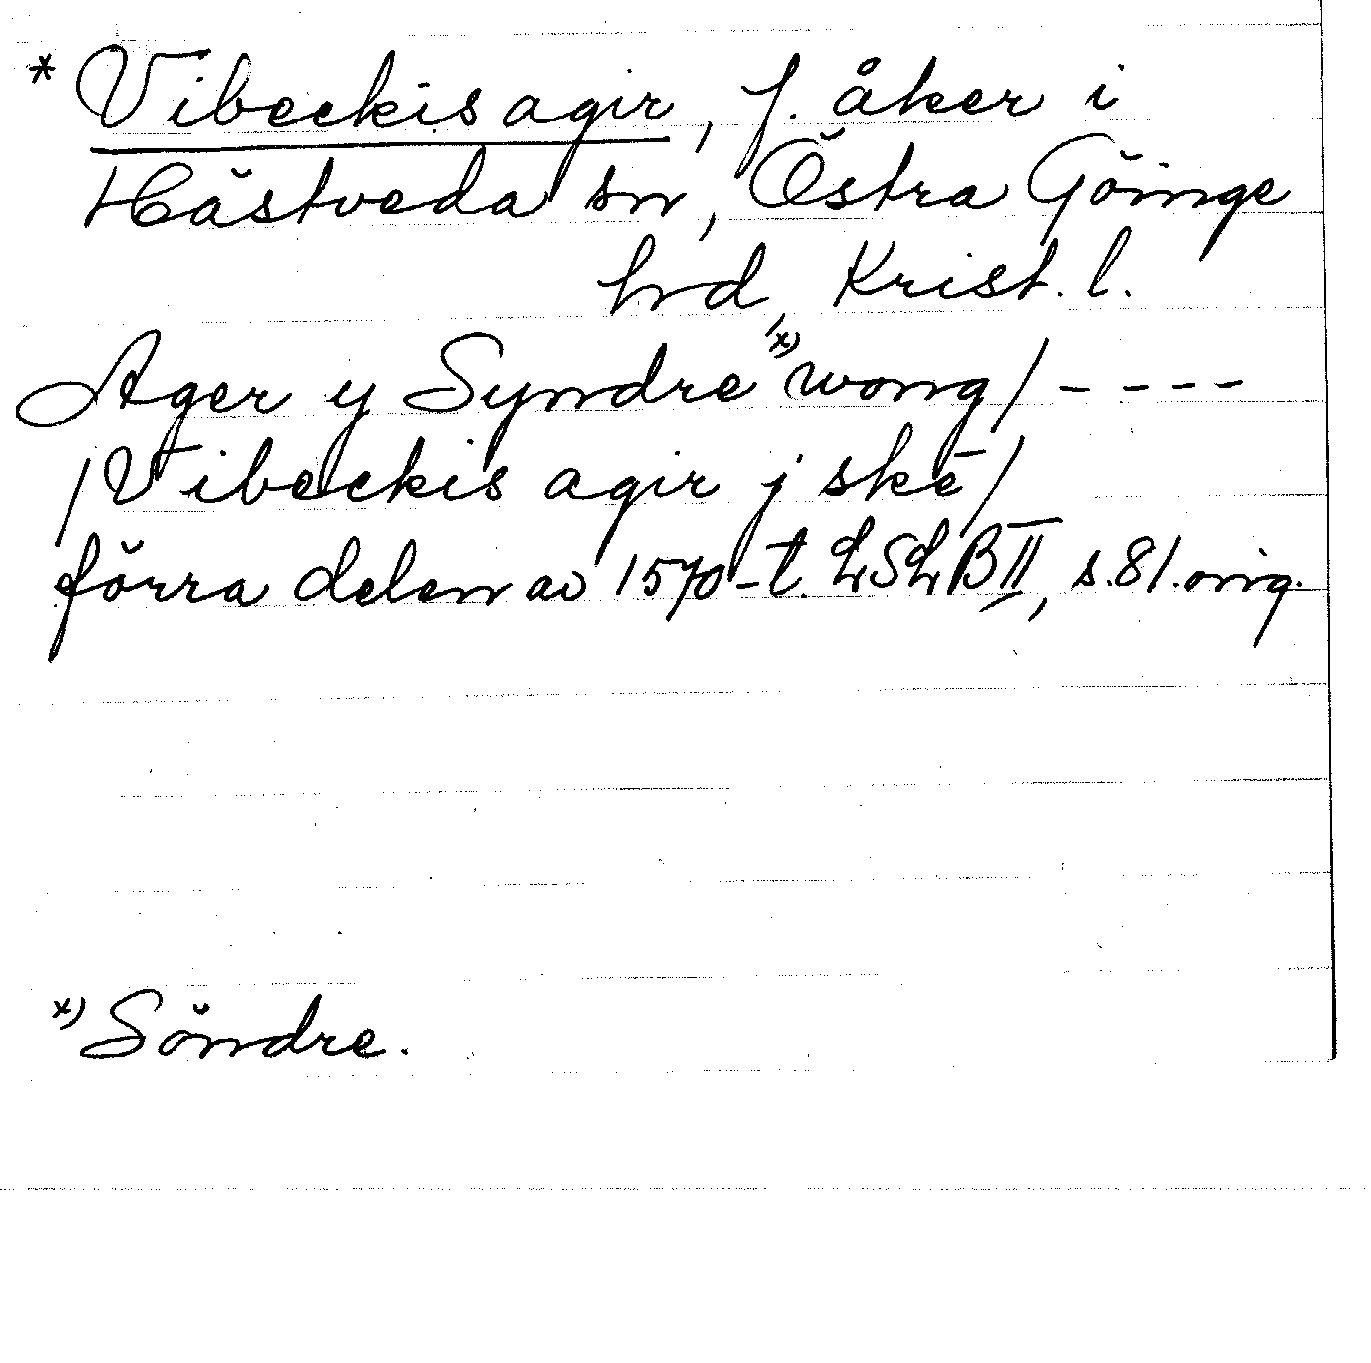 * Vibeckis agir, f. åker i
Hästveda sn, Östra Göinge
hrd, Krist. l.
Ager y Syndre x) wong / - - - -
/ Vibeckis agir j skē /
förra delen av 1570-t. LSLB II, s. 81. orig.
x) Söndre.